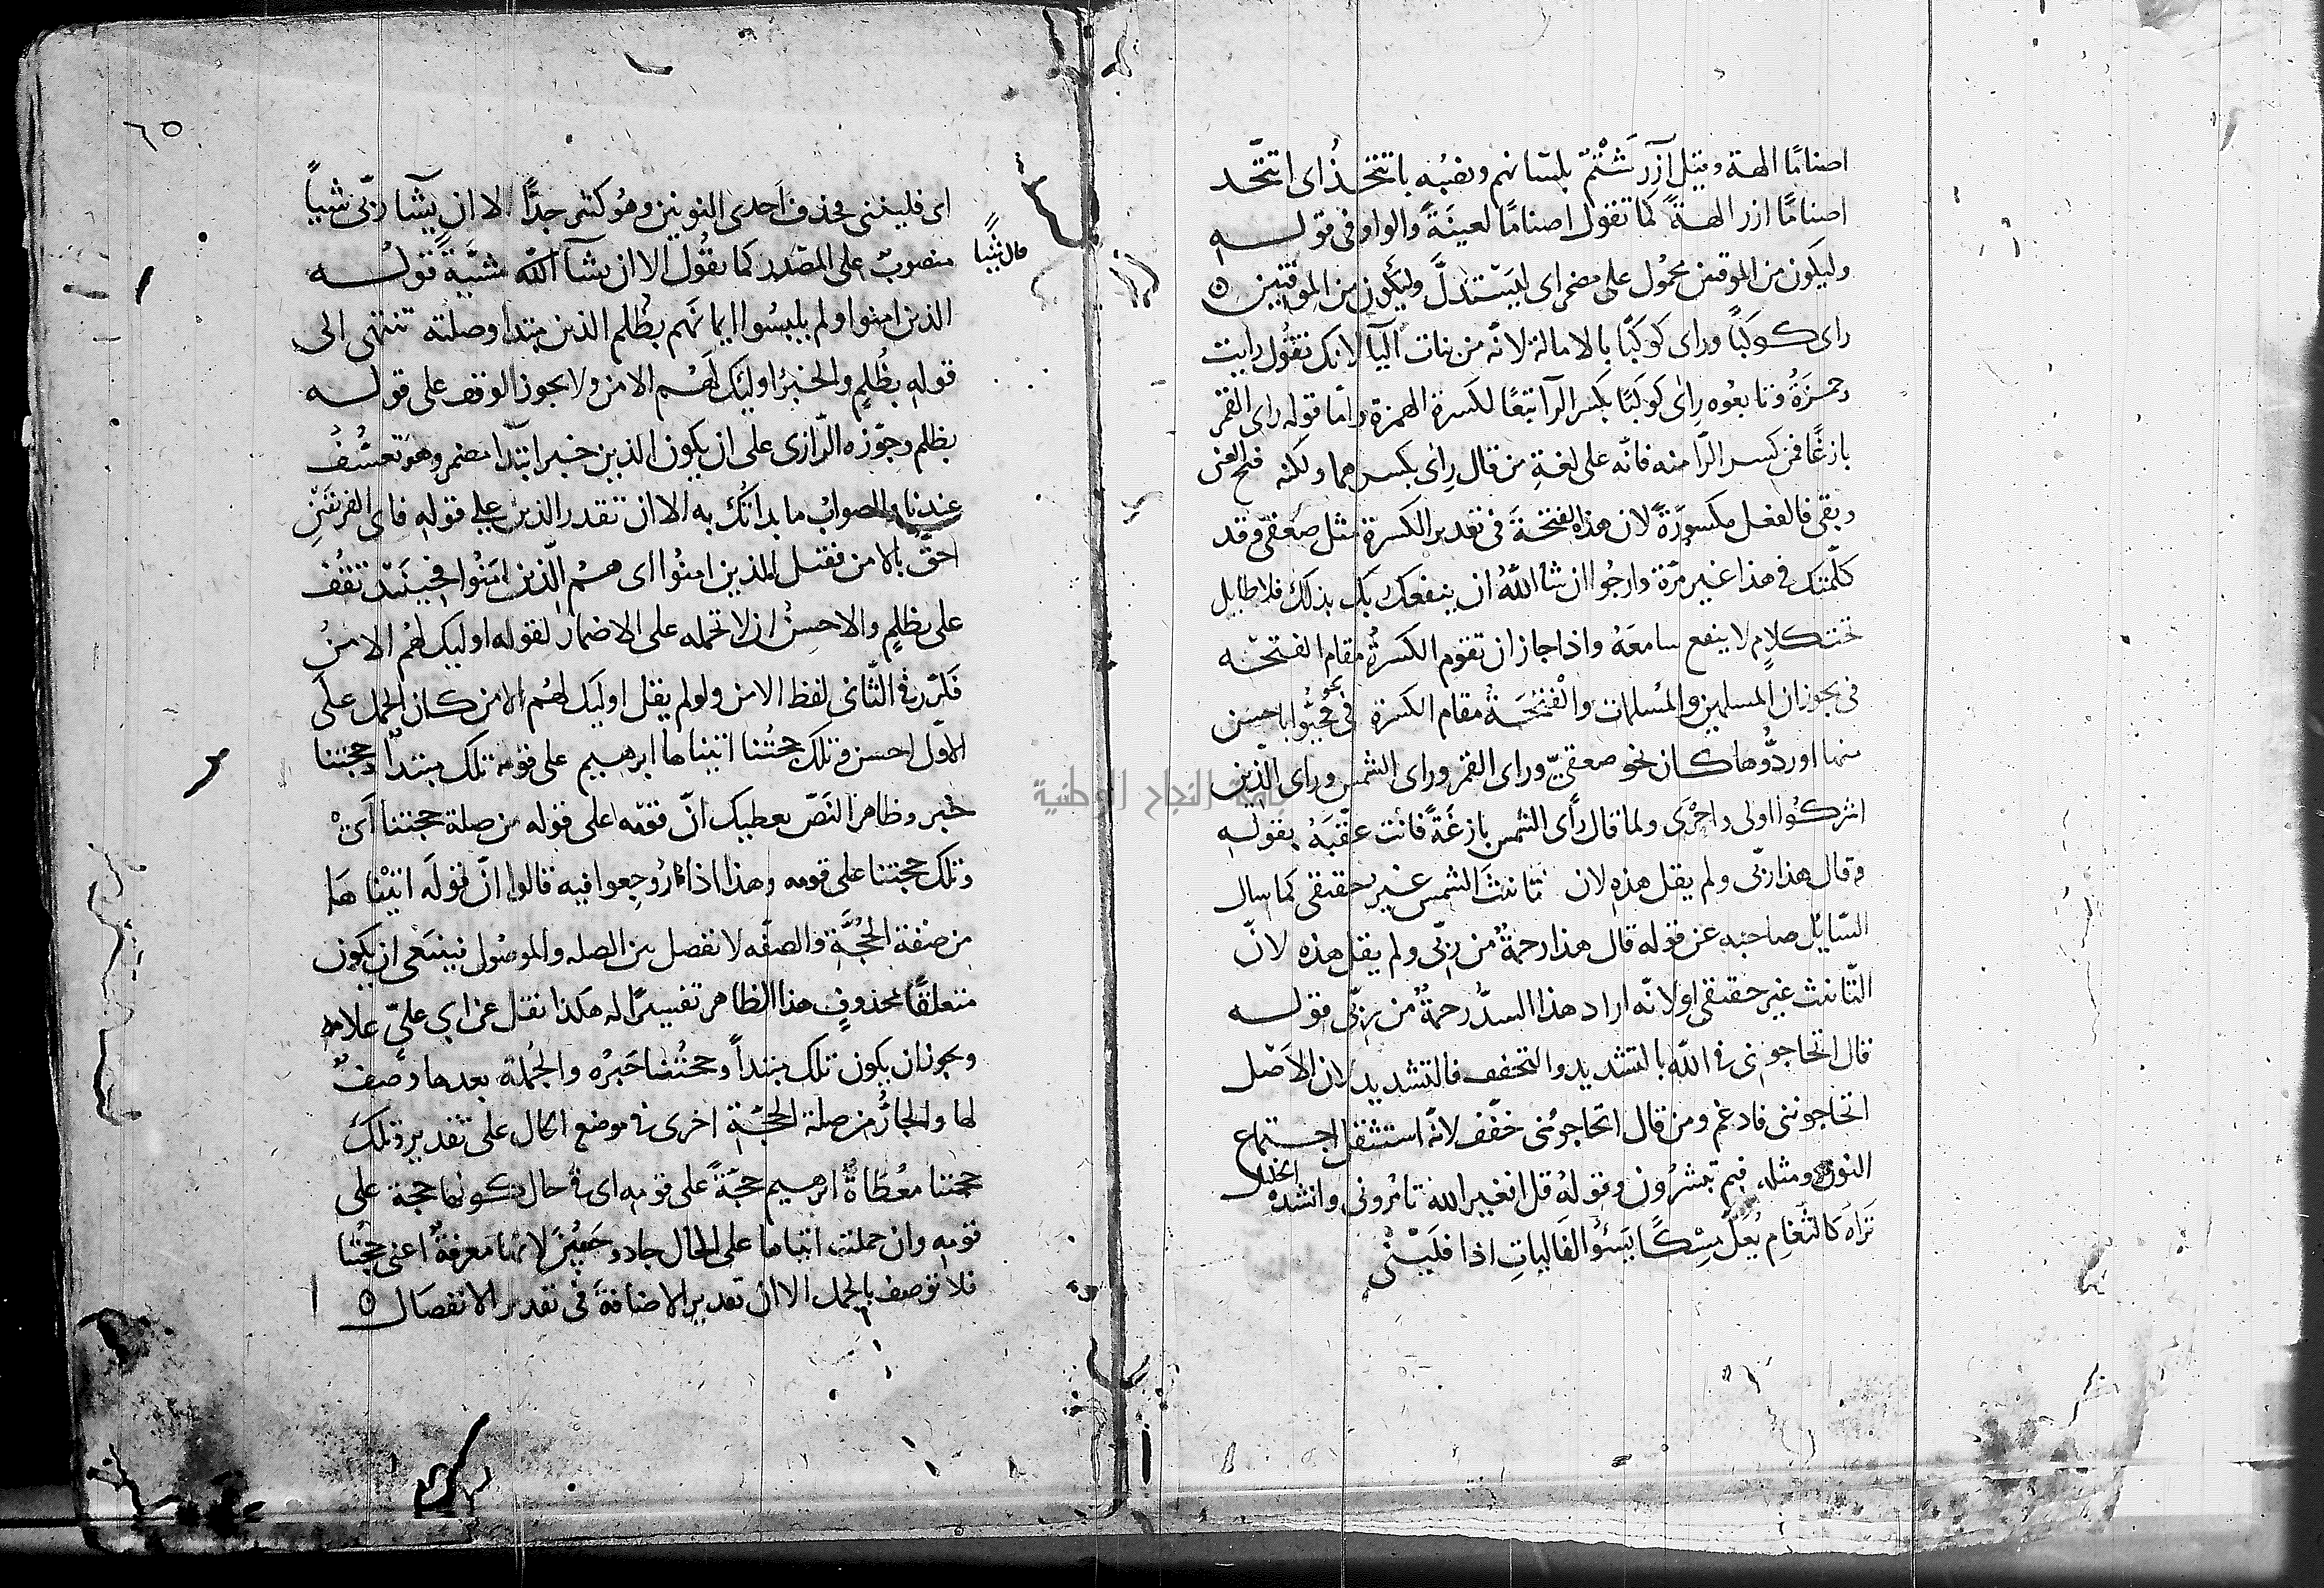 اصنامًا الهة وقيل آزر شَتْمٌ بلسانهم ونصبُه باتتخذُ اى اتتّخد
اصنامًا ازر الهةً كما تقول اصنامًا لعينَةً والواو فى قوله
وليكون من الموقنين محمُول على مضمر اى ليستدلَّ وليكون من الموقنين
راى كوكبًا وراى كوكبًا بالامالة لانّه من بنات اليا لانك تقُول رايت
وحمزةُ وتابعُوه رِاى كوكبًا بكسر الرآ تبعًا لكسرة الهمزة وامّا قوله راى القمر
بازغًا فمن كسر الرّا منه فانّه على لغةِ من قال رِاى بكسرهما ولكنه فتح العين
وبقى فا الفعل مكسورةً لان هذه الفتحةَ فى تقدير الكسرة مثل صعقىّ وقد
كلّمتك فى هذا غير مرّة وارجُوا ان شا اللهُ ان ينفعك بك بذلك فلا طايل
تحت كلامٍ لا ينفع سامعَهُ واذا جاز ان تقوم الكسرةُ مقام الفتحه
فى يجوز ان المسلمين والمسلمات والفتحَةُ مقام الكسرة فى نحو فحيُّوا باحسن
منها او ردُّوها كان نحو صعقىّ وراى القمر وراى الشمس وراى الّذين
اشركُوا اولى واحْرَى ولما قال رأى الشمس بازغَةً فانث عقّبَهُ بقولهِ
وقال هذا ربّى ولم يقل هذهِ لان تانيثَ الشمس غير حقيقى كما سال
السّايل صاحبه عن قوله قال هذا رحمةٌ من ربّى ولم يقل هذه لانّ
التّانيث غير حقيقى او لانّه اراد هذا السدُّ رحمةٌ من ربّى قوله
قال اتحاجونى فى اللّه بالتشديد والتخفيف فالتشديد لان الاصل
اتحاجوننى فادغم ومن قال اتحاجونى خفّف لانّه استثقل اجتماع
النون ومثله فبم تبشرُون وقولهُ قل افغير الله تامُرونى وانشد الخليل
تَراهُ كالثّغامِ يُعَلّ مِسْكًا يَسُؤُ الفَالياتِ اذا فلَيْنْى
٦٥
اى فلينَنى فحذف احدى النونين وهُو كثير جدًّا الا ان يشآ ربّى شيأً
منصوبٌ على المصدر كما يقُول الا ان يشآ اللّه مشيَّةً قوله
قال شيئًا
الذين امنوا ولم يلبسُوا ايمانَهم بظُلم الذين مبتدا وصلته تنتهى الى
قوله بظُلمٍ والخبرُ اوليَك لهُم الامن ولا يجوز الوقف على قوله
بظلم وجوّزه الرّازى على ان يكون الذين خبر ابتدآ مضمر وهو تعسُّفٌ
عندنا والصوابُ ما بداتُك به الا ان تقدر الذين على قوله فاى الفريقَيْنِ
احقُّ بالامن فقيل الذين امنُوا اى هُم الّذين امَنُوا فحينَيذ تقفُ
على بظلمٍ والاحسن ان لا تحمله على الاضمار لقوله اوليك لهُم الامنُ
فكرّر فى الثّانى لفظ الامن ولو لم يقل اوليَك لهُم الامن كان الحمل على
الاوّل احسن وتلك حجتُنا اتيناها ابرهيم على قومه تلك مبتدأٌ وحجتنا
خبر وظاهر النَصّ يعطيك انّ قوله على قومه من صلة حجتنا اىْ
وتلك حجتنا على قومه وهذا اذا رُوجعوا فيه قالوا انّ قولَه اتينْاهَا
من صفة الحُجَّةِ والصفه لا تفصل بين الصله والموصُول فينبَغى ان يكون
متعلقًا بمحذوفٍ هذا الظاهر تفسيرًا له هكذا نقل عن ابى علىّ علامه
ويجوز ان يكون تلك مبتدأً وحجتُنا خَبرُه والجُملة بعدها وصْفٌ
لها والجارُّ من صلة الحجّة اخرى فى موضع الحال على تقدير وتلك
حجتنا معُطاةً ابرهيم حجّةً على قومِه اى فى حال كونها حجة على
قومِه وان حملت اتيناها على الحال جاد وحسُنَ لانّها معرفةٌ اعنى حجّتُنا
فلا توصف بالجمل الا ان تقدير الاضافةَ فى تقدير الانفصال
جامعة النجاح الوطنية